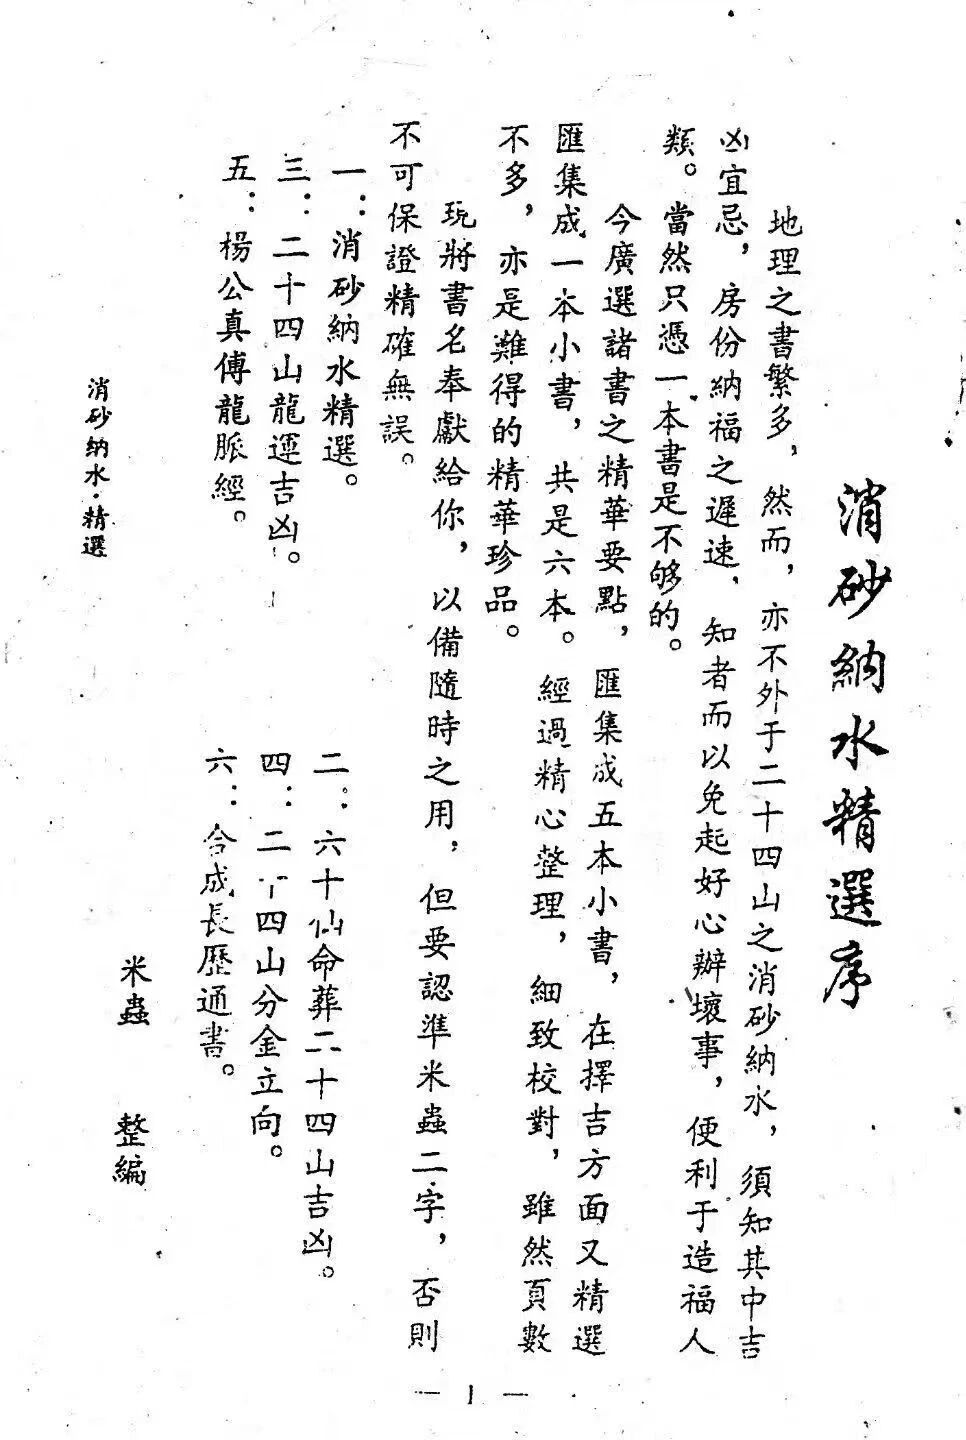 消砂納水精選序
地理之書繁多，然而，亦不外于二十四山之消砂納水，須知其中吉
凶宜忌，房份納福之遲速，知者而以免起好心辦壞事，便利于造福人
類。當然只憑一本書是不够的。
今廣選諸書之精華要點，匯集成五本小書，在擇吉方面又精選
匯集成一本小書，共是六本。經過精心整理，細致校對，雖然頁數
不多，亦是難得的精華珍品。
玩將書名奉獻給你，以備隨時之用，但要認準米蟲二字，否則
不可保證精確無誤。
一：消砂納水精選。
二：六十仙命葬二十四山吉凶。
三：二十四山龍運吉凶。
四：二十四山分金立向。
五：楊公真傳龍脈經。
六：合成長歷通書。
米蟲 整編
消砂納水·精選
— 1 —